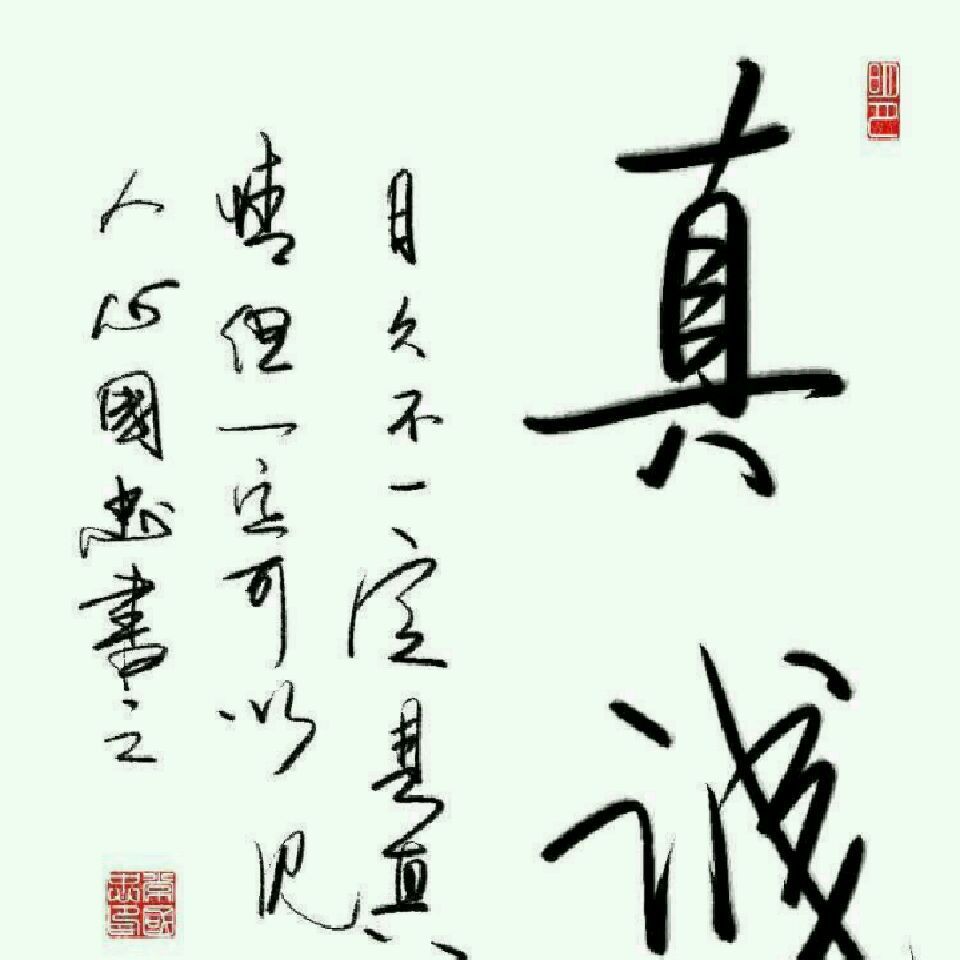 真诚
日久不一定是真
情但一定可以见
人心國忠書之